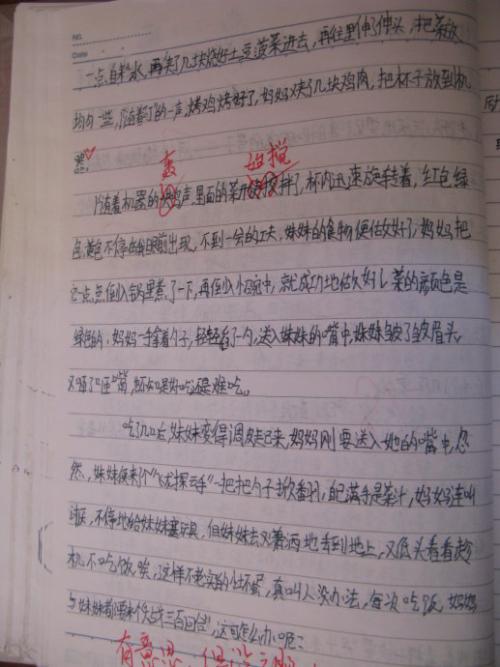 NO.
Date
一点自来水,再夹了几块烧好土豆菠菜进去,再往里伸了伸头,把菜放
均匀一些,随着"丁"的一声,烤鸡烤好了,妈妈夹了几块鸡肉,把杯子放到机
器
轰 搅
随着机器的声里面的菜开始搅拌了,杯内迅速旋转着,红色绿
色黄色不停在眼前出现,不到一分的工夫,妹妹的食物便做好了,妈妈把
它一点点倒入锅里煮了一下,再倒入小碗中,就成功地做好了。菜的颜色是
绿色的,妈妈一手拿着勺子,轻轻舀了一勺,送入妹妹的嘴中,妹妹皱了皱眉头。
又咂了咂嘴,也不知是好吃还是难吃。
吃了几口后,妹妹变得调皮起来,妈妈刚要送入她的嘴中,忽
然,妹妹便来个"飞龙探云手"一把把勺子掀翻,自己满手是菜汁,妈妈连叫
不停地给妹妹塞玩具,但妹妹去又潇洒地丢到地上,又低头看看趁
机不吃饭,唉,这样不老实的坏蛋,真叫人没办法,每次吃饭,妈妈
与妹妹都要来个大战三百回合,这可怎么办呢?
有意思,